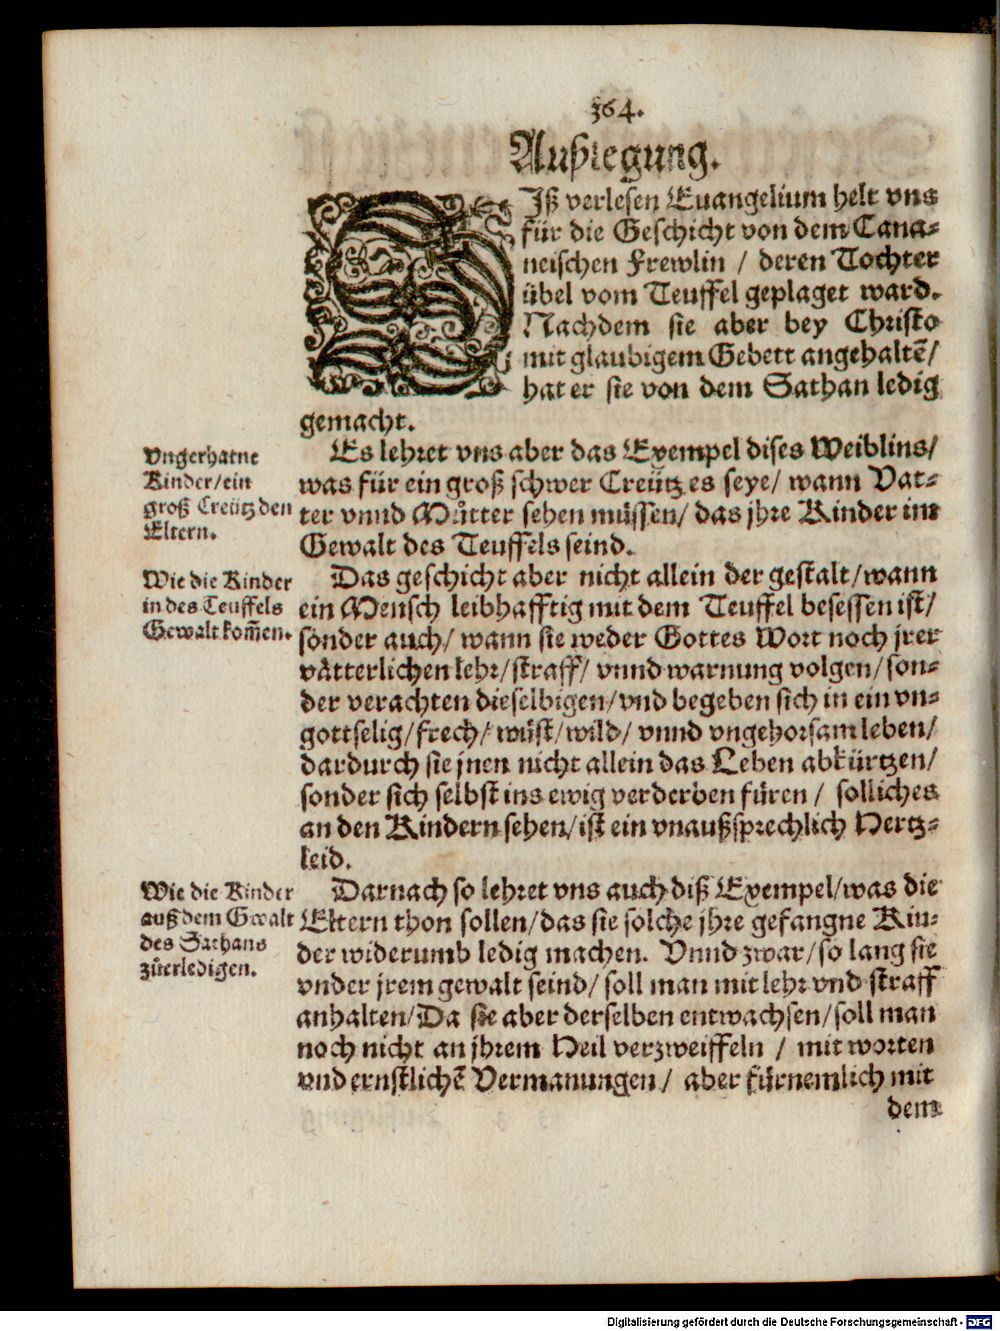 364.
Außlegung.
DIß verlesen Euangelium helt vns
für die Geschicht von dem Cana-
neischen Frewlin / deren Tochter
übel vom Teuffel geplaget ward.
Nachdem sie aber bey Christo
mit glaubigem Gebett angehaltẽ/
hat er sie von dem Sathan ledig
gemacht.
Es lehret vns aber das Exempel dises Weiblins/
was für ein groß schwer Creütz es seye/ wann Vat-
ter vnnd Můtter sehen müssen/ das jhre Kinder im
Gewalt des Teuffels seind.
Vngerhatne
Kinder/ein
groß Creütz den
Eltern.
Das geschicht aber nicht allein der gestalt/wann
ein Mensch leibhafftig mit dem Teuffel besessen ist/
sonder auch/ wann sie weder Gottes Wort noch jrer
vätterlichen lehr/straff/ vnnd warnung volgen/son-
der verachten dieselbigen/vnd begeben sich in ein vn-
gottselig/frech/ wüst/wild/ vnnd vngehorsam leben/
dardurch sie jnen nicht allein das Leben abkürtzen/
sonder sich selbst ins ewig verderben füren / solliches
an den Kindern sehen/ist ein vnaußsprechlich Hertz-
leid.
Wie die Kinder
in des Teuffels
Gewalt kom̃en.
Darnach so lehret vns auch diß Exempel/was die
Eltern thon sollen/das sie solche jhre gefangne Kin-
der widerumb ledig machen. Vnnd zwar/so lang sie
vnder jrem gewalt seind/ soll man mit lehr vnd straff
anhalten/Da sie aber derselben entwachsen/soll man
noch nicht an jhrem Heil verzweiffeln / mit worten
vnd ernstlichẽ Vermanungen/ aber fürnemlich mit
dem
Wie die Kinder
auß dem Gwalt
des Sathans
zůerledigen.
Digitalisierung gefördert durch die Deutsche Forschungsgemeinschaft - DFG